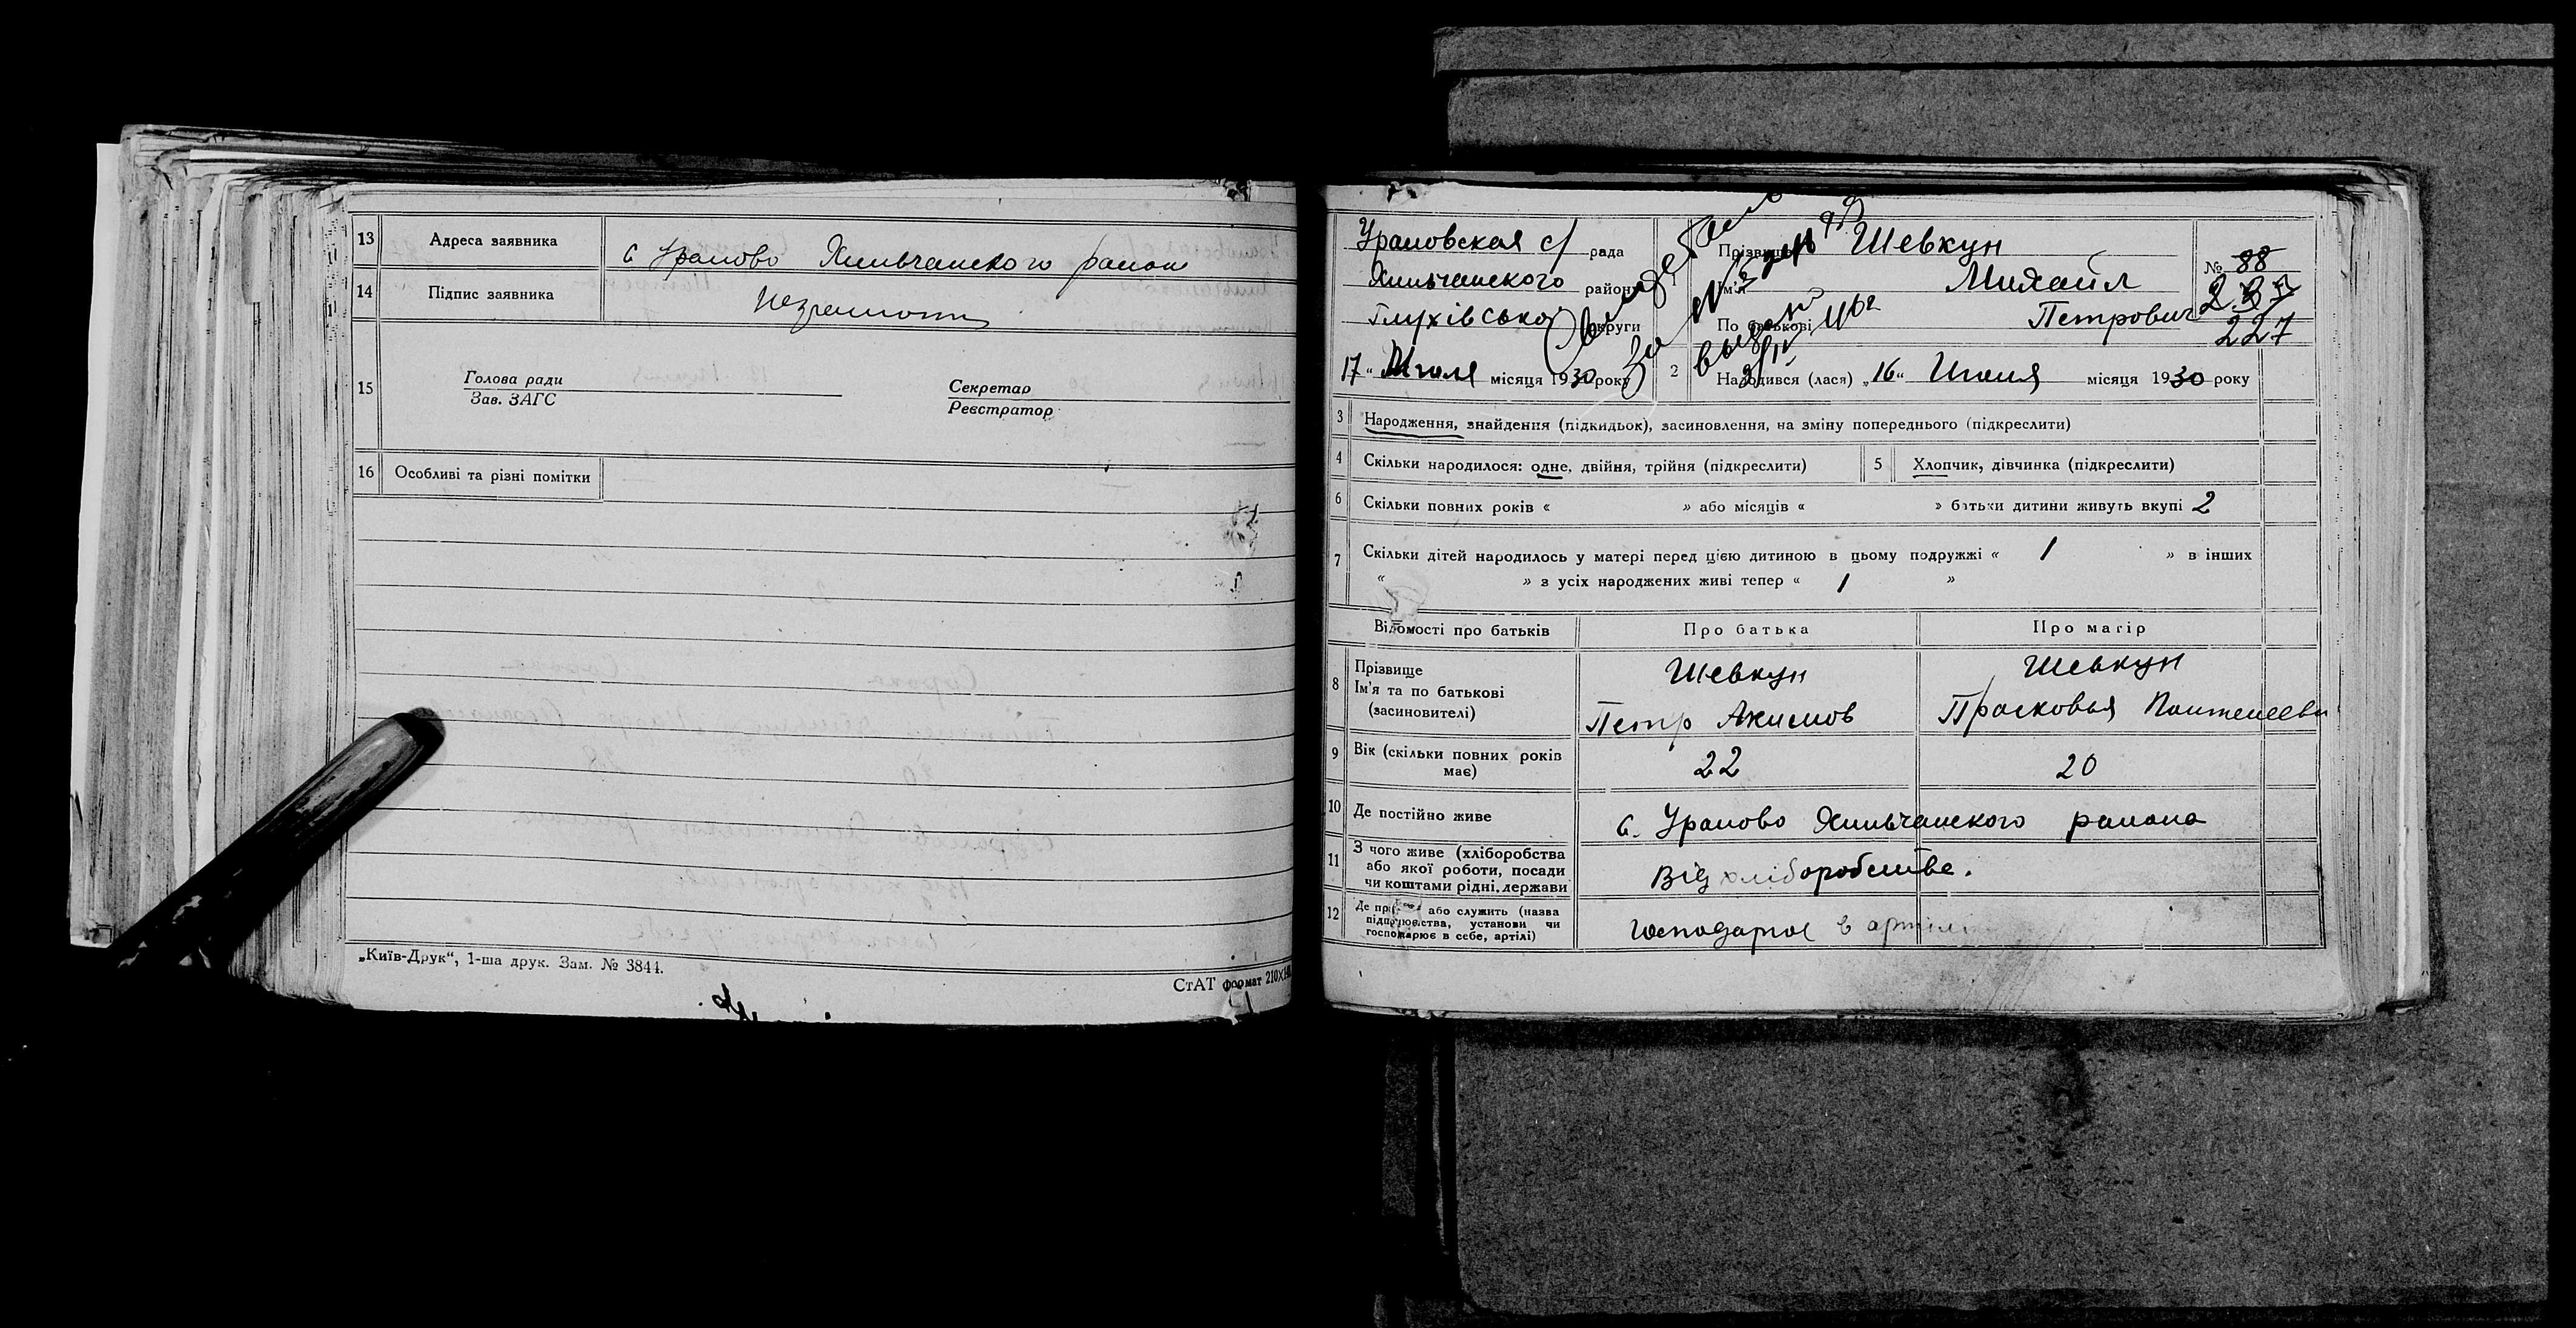 13 Адреса заявника с Урамово Хильчанского район
14 Підпис заявника Неграмотн
15 Голова ради Секретар
Зав. ЗАГС Реєстратор
16 Особливі та різні помітки
„Київ-Друк“, 1-ша друк. Зам. № 3844.
СтАТ формат
Урамовская с/ рада
Хильчанского району
Глухівської округи
17 " Июля місяця 1930 року
1 Прізвище Шевкун
Ім'я Михаил
По батькові Петрович
№ 88
227
2 Народився (лася) „16“ Июля місяця 1930 року
3 Народження, знайдення (підкидьок), засиновлення, на зміну попереднього (підкреслити)
4 Скільки народилося: одне, двійня, трійня (підкреслити) 5 Хлопчик, дівчинка (підкреслити)
6 Скільки повних років « » або місяців « » батьки дитини живуть вкупі 2
7 Скільки дітей народилось у матері перед цією дитиною в цьому подружжі « 1 » в інших
« » з усіх народжених живі тепер « 1 »
Відомості про батьків Про батька Про матір
8 Прізвище Шевкун Шевкун
Ім'я та по батькові
(засиновителі) Петр Акимов Прасковья Пантелеевн
9 Вік (скільки повних років має) 22 20
10 Де постійно живе с. Урамово Хильчанского района
11 З чого живе (хліборобства
або якої роботи, посади
чи коштами рідні, держави Від хліборобства.
12 Де працює або служить (назва
підприємства, установи чи
господарює в себе, артілі) господарює в артілі